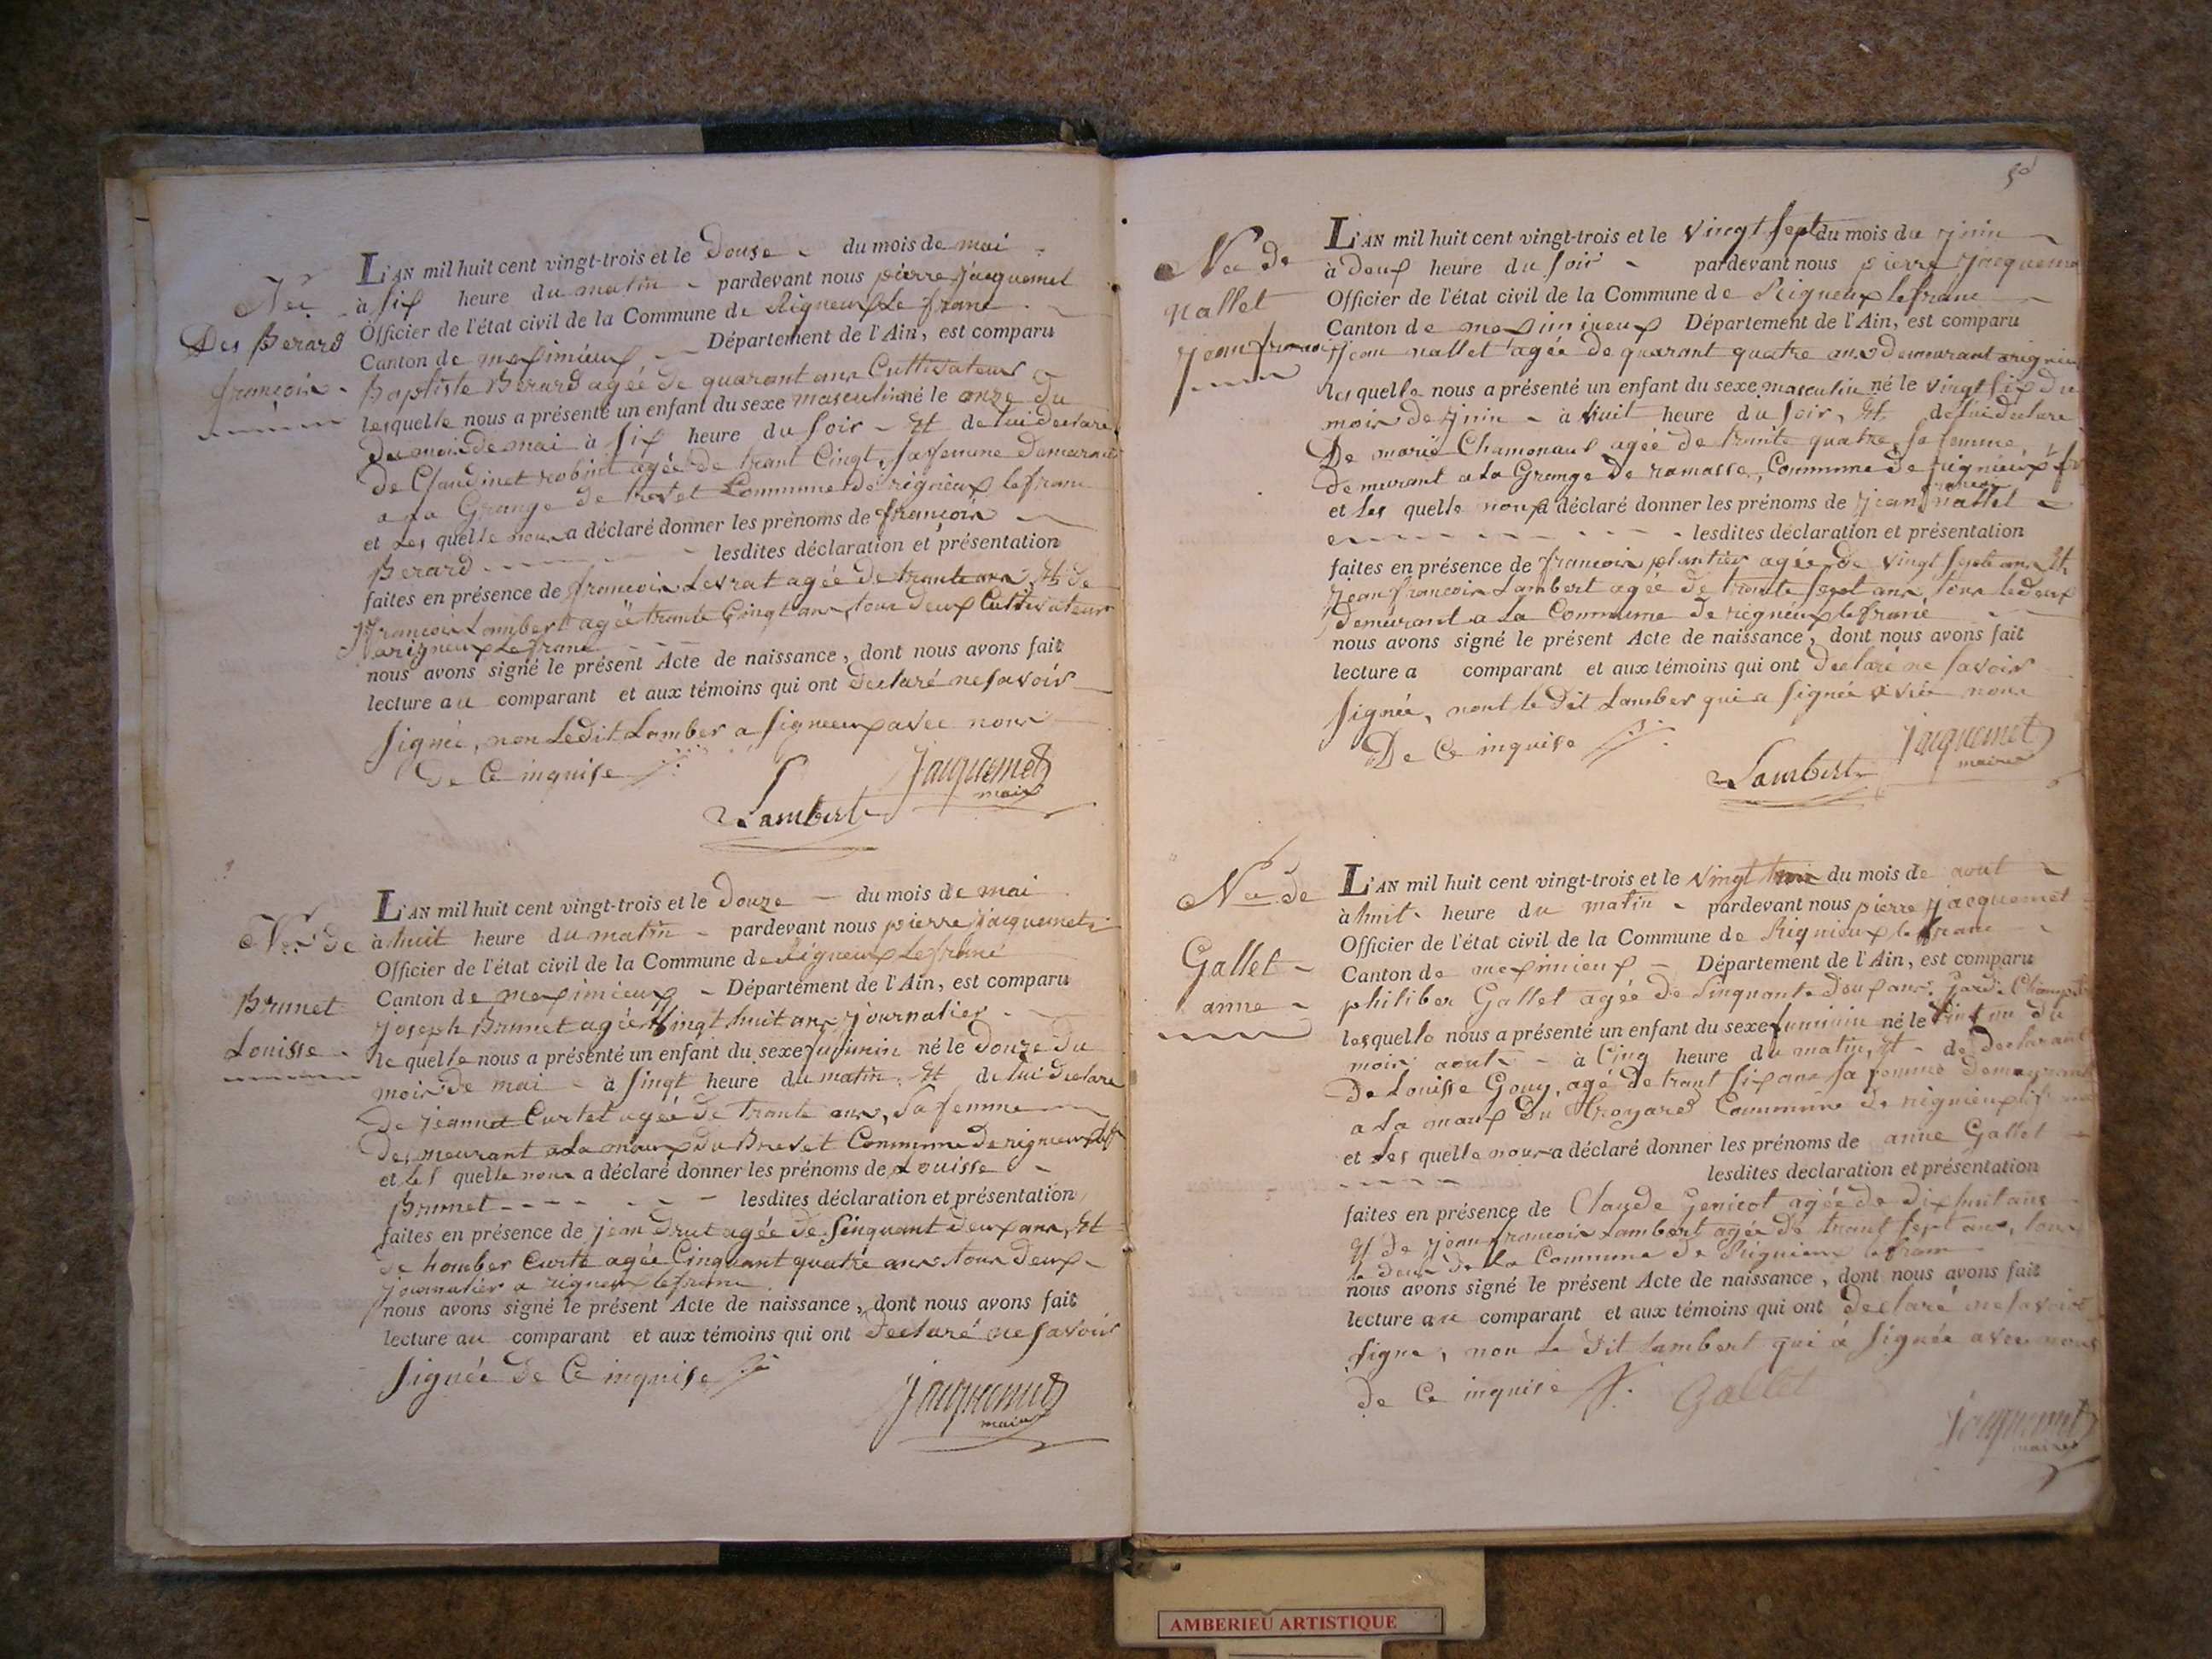 L'AN mil huit cent vingt-trois et le Douse du mois de mai
Né à six heure du matin pardevant nous pierre Jacquemet
Officier de l'état civil de la Commune de Rigneux le franc
Des Berard
françois
Canton de meximieux Département de l'Ain, est comparu
Baptiste Berard agée de quarant ans Cultivateur
lesquelle nous a présenté un enfant du sexe masculin né le onze du
du mois de mai à six heure du soir Et de lui declaré
de Claudinet robin agée de trant Cingt, sa femme Demeurant
a la Grange de Commune de rigneux le franc
et Les quelle nous a déclaré donner les prénoms de françois
Berard lesdites déclaration et présentation
faites en présence de francois Levrat agée de trante ans, Et de
francois Lambert agée trante Cingt ans, tous deux Cultivateur
a rigneux Le franc
nous avons signé le présent Acte de naissance, dont nous avons fait
lecture au comparant et aux témoins qui ont Declaré ne savoir
signé, non Ledit Lamber a avec nous
De Ce inquise
Jacquemet
maire
Lambert
L'AN mil huit cent vingt-trois et le Douze du mois de mai
Née de à huit heure du matin pardevant nous pierre Jacquemet
Officier de l'état civil de la Commune de Rigneux Le franc
Brunet
Louisse
Canton de meximieux Département de l'Ain, est comparu
Joseph Brunet agée Vingt huit ans journalier
le quelle nous a présenté un enfant du sexe feminin né le Douze Du
mois De mai à singt heure du matin Et de lui declare
De jeannet Curtet agée de trante ans, Sa femme
Demeurant a La maux Du Brevet Commune De rigneux
et Les quelle nous a déclaré donner les prénoms de Louisse
Brunet lesdites déclaration et présentation
faites en présence de jean Drut agée de Sinquant deux ans, Et
de homber Curte agée Cinquant quatre ans tous deux
journalier a rigneux le franc
nous avons signé le présent Acte de naissance, dont nous avons fait
lecture au comparant et aux témoins qui ont Declaré ne savoir
signée De Ce inquise
Jacquemet
maire
5
L'AN mil huit cent vingt-trois et le Vingt sept du mois du juin
Née de
nallet
jean francois
à deux heure du soir pardevant nous pierre Jacquemet
Officier de l'état civil de la Commune de Rigneux le franc
Canton de meximieux Département de l'Ain, est comparu
jean nallet agée de quarant quatre ans demeurant a rignieu
les quelle nous a présenté un enfant du sexe masculin né le vingt six du
mois de juin à huit heure du soir, Et de lui declare
De marie Chamonaul agée de trante quatre, sa femme
demeurant a la Grange De ramasse, Commune de rignieux
et Les quelle nous a déclaré donner les prénoms de jean francois nallet
lesdites déclaration et présentation
faites en présence de francois plantier agée de vingt sept ans Et
jean francois Lambert agée de trante sept ans, tous le deux
demeurant a La Commune De rigneux le franc
nous avons signé le présent Acte de naissance, dont nous avons fait
lecture a comparant et aux témoins qui ont Declaré ne savoir
signée, nont le Dit Lamber qui a signée nous
De Ce inquise
Jacquemet
maire
Lambert
L'AN mil huit cent vingt-trois et le Vingt trois du mois de aout
Née de
Gallet
anne
à huit heure du matin pardevant nous pierre Jacquemet
Officier de l'état civil de la Commune de Rignieux le franc
Canton de meximieux Département de l'Ain, est comparu
philiber Gallet agée de Sinquante ans garde Champetre
lesquelle nous a présenté un enfant du sexe feminin né le du
mois aout à Cinq heure du matin, Et de declarant
De Louisse Gouy, agé de trant six ans sa femme demeurant
a La maux Du Commune de rignieux
et Les quelle nous a déclaré donner les prénoms de anne Gallet
lesdites déclaration et présentation
faites en présence de Claude Genicot agée de dix huit ans
Et de jean francois Lambert agée de trant sept ans, tous
le deux De La Commune de Rignieux le franc
nous avons signé le présent Acte de naissance, dont nous avons fait
lecture au comparant et aux témoins qui ont Declaré ne savoir
signe, non Le Dit Lambert qui a signée avec nous
De Ce inquise Gallet
Jacquemet
maire
AMBERIEU ARTISTIQUE